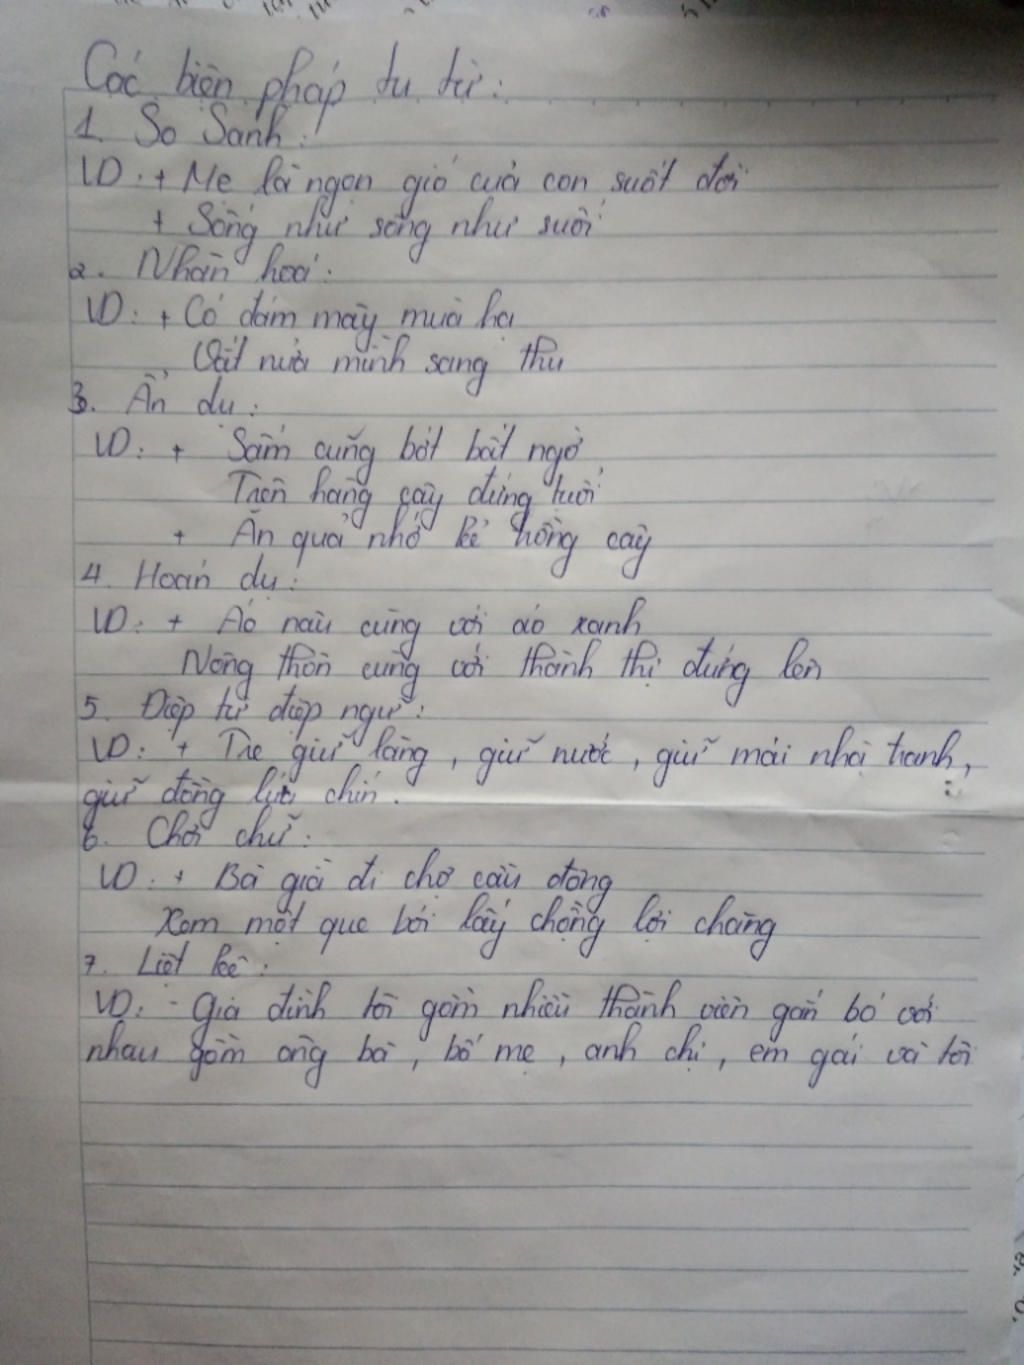 Các biện pháp tu từ:
1. So Sánh:
VD: + Mẹ là ngọn gió của con suốt đời
+ Sống như sông như suối
2. Nhân hoá:
VD: + Có đám mây mùa hạ
Vắt nửa mình sang thu
3. Ẩn dụ:
VD: + Sấm cũng bớt bất ngờ
Trên hàng cây đứng tuổi
+ Ăn quả nhớ kẻ trồng cây
4. Hoán dụ:
VD: + Áo nâu cùng với áo xanh
Nông thôn cùng với thành thị đứng lên
5. Điệp từ điệp ngữ:
VD: + Tre giữ làng, giữ nước, giữ mái nhà tranh,
giữ đồng lúa chín.
6. Chơi chữ:
VD: + Bà già đi chợ cầu đông
Xem một que bói lấy chồng lợi chăng
7. Liệt kê:
VD: - Gia đình tôi gồm nhiều thành viên gắn bó với
nhau gồm ông bà, bố mẹ, anh chị, em gái và tôi